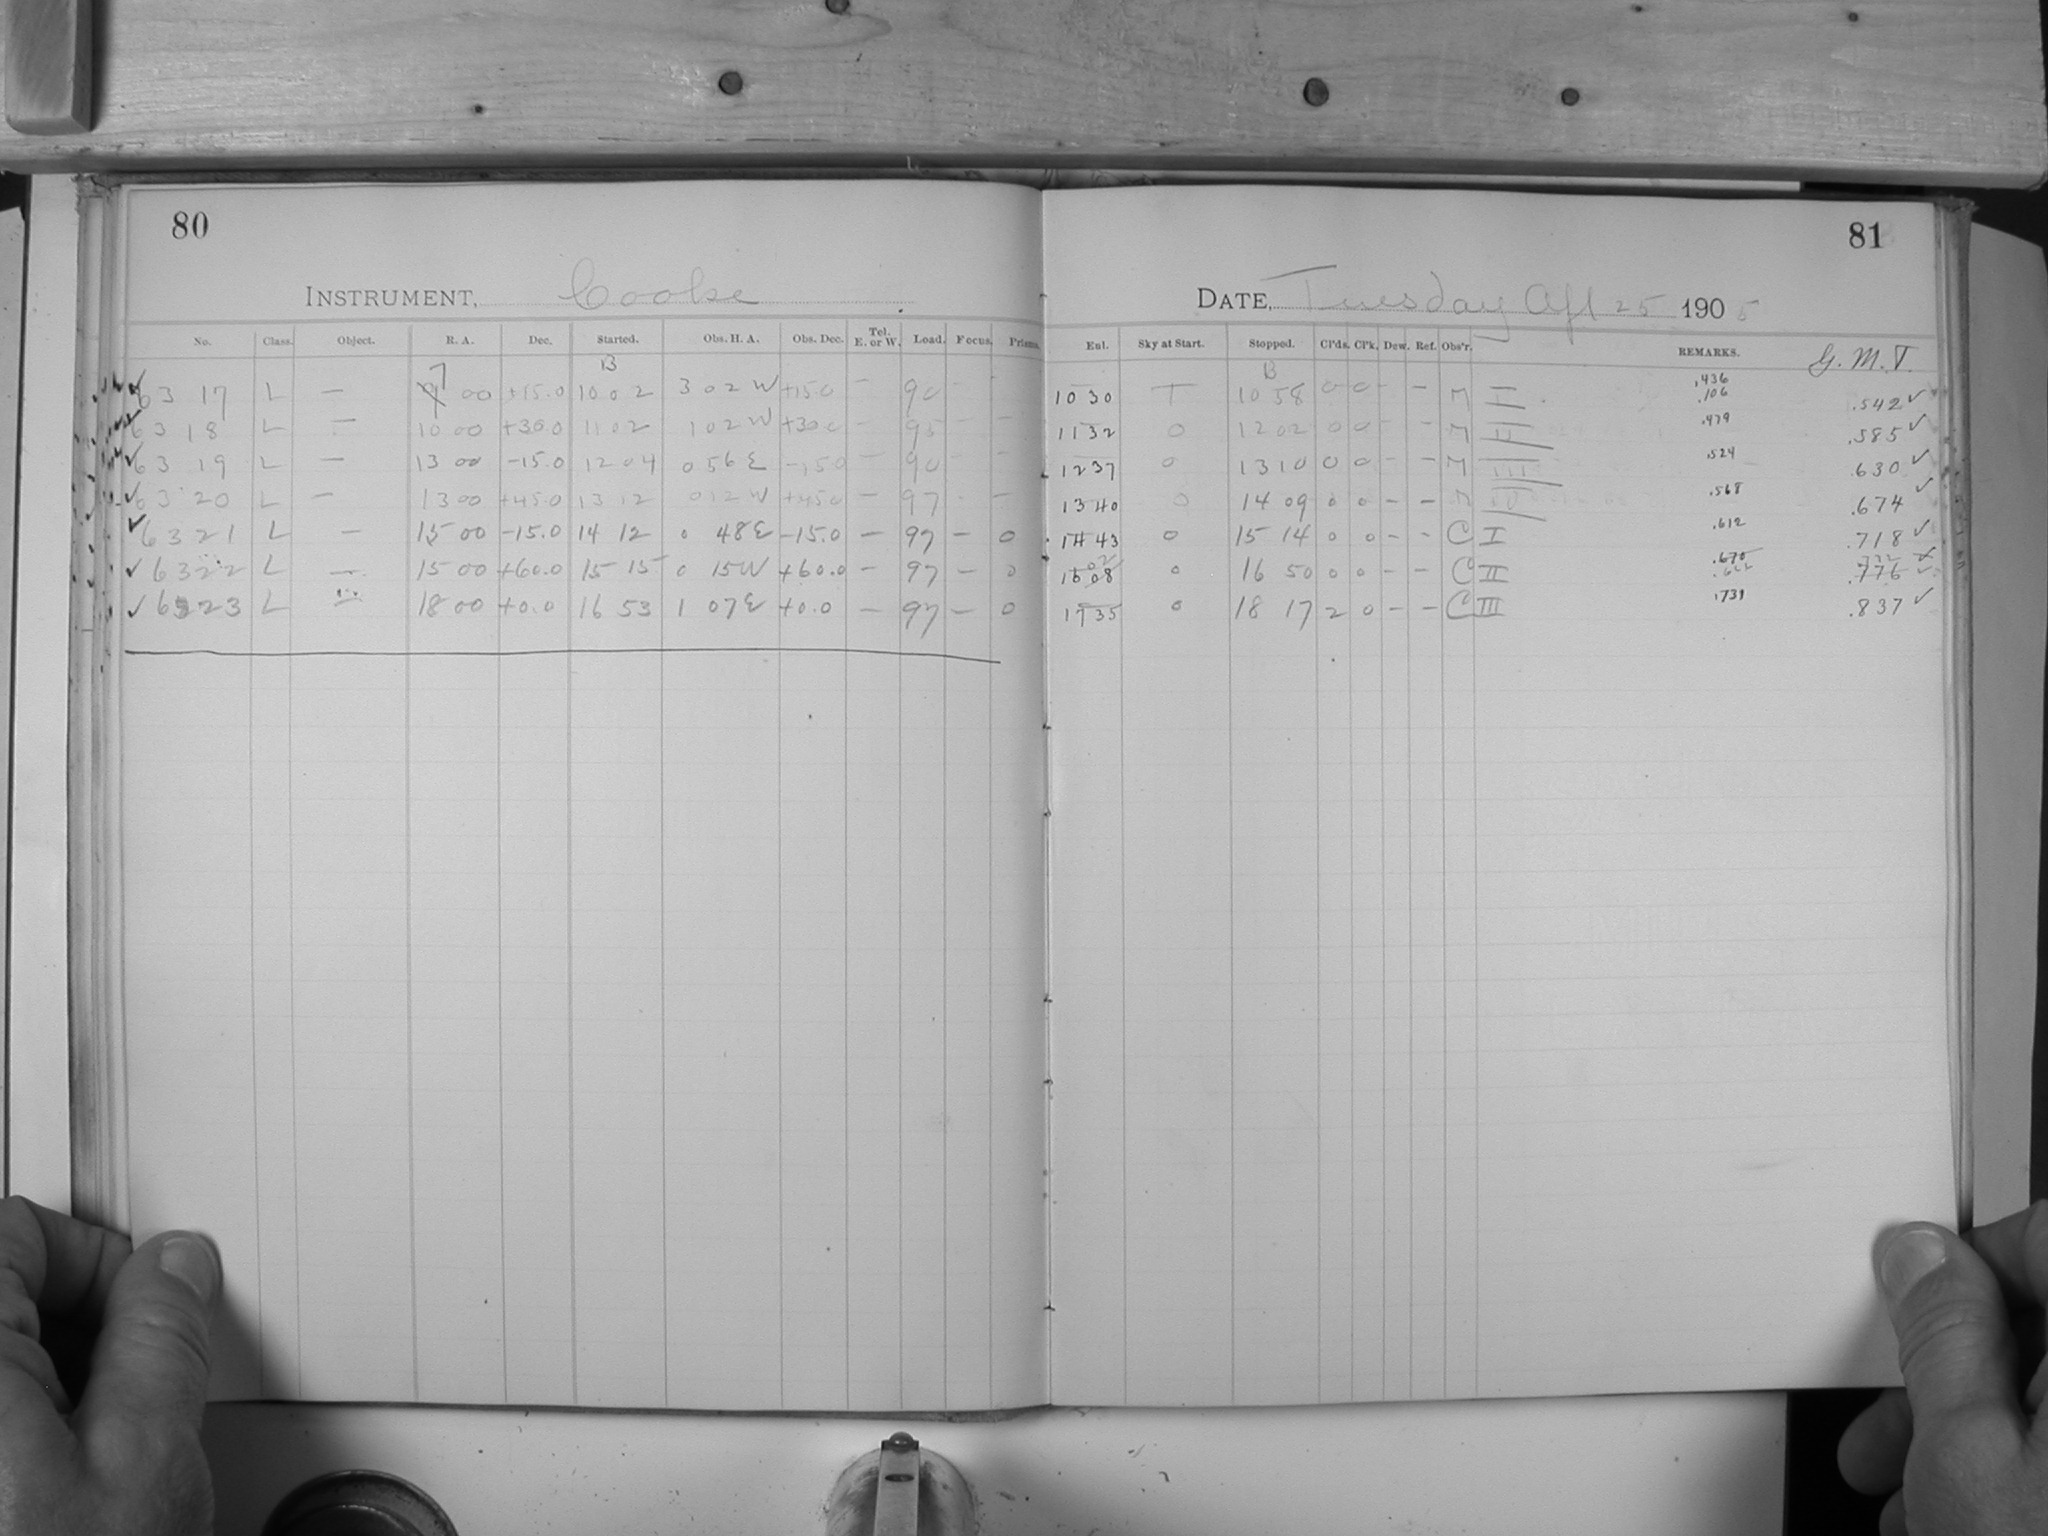 80
INSTRUMENT, Cooke
No. Class. Object. R. A. Dec. Started. Obs. H. A. Obs. Dec. Tel. E. or W. Load. Focus. Prisms.
7 B
✓ 6317 L — 9 00 +15.0 10 02 3 02 W +15.0 — 90 - -
✓ 6318 L — 10 00 +30.0 11 02 1 02 W +30.0 — 95 - -
✓ 6319 L — 13 00 -15.0 12 04 0 56 E -15.0 — 90 - -
✓ 6320 L — 13 00 +45.0 13 12 0 12 W +45.0 — 97 - —
✓ 6321 L — 15 00 -15.0 14 12 0 48 E -15.0 — 97 — 0
✓ 6322 L — 15 00 +60.0 15 15 0 15 W +60.0 — 97 — 0
✓ 6323 L — 18 00 +0.0 16 53 1 07 E +0.0 — 97 — 0
81
DATE, Tuesday Apl 25 1905
Enl. Sky at Start. Stopped. Cl'ds. Cl'k. Dew. Ref. Obs'r. REMARKS. G. M. T.
B
10 30 T 10 58 0 0 - - M I .436 .106 .542 ✓
11 32 0 12 02 0 0 - - M II .479 .585 ✓
12 37 0 13 10 0 0 - - M III .524 .630 ✓
13 40 0 14 09 0 0 - - M IV .568 .674 ✓
14 43 0 15 14 0 0 - - C I .612 .718 ✓
02
16 08 0 16 50 0 0 - - C II .670 .776
17 35 0 18 17 2 0 - - C III .731 .837 ✓